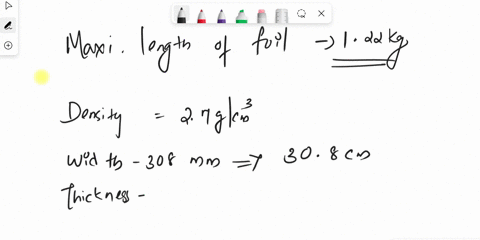 Maxi. length of foil → 1.22kg
Density = 2.7 g/cm³
Width - 308 mm ⇒ 30.8 cm
Thickness -